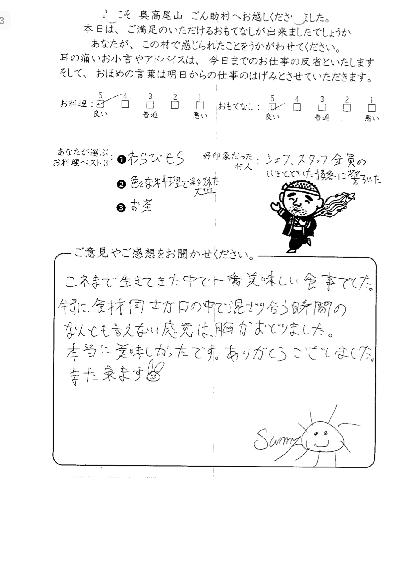 こそ 奥高尾山 ごん助村へお越しくださ ました。
本日は、ご満足のいただけるおもてなしが出来ましたでしょうか
あなたが、この村で感じられたことをうかがわせてください。
耳の痛いお小言やアドバイスは、今日までのお仕事の反省といたします
そして、おほめの言葉は明日からの仕事のはげみとさせていただきます。
お料理: 5 4 3 2 1 おもてなし: 5 4 3 2 1
良い 普通 悪い 良い 普通 悪い
あなたが選ぶ、お料理ベスト3
❶ わらびもち
❷ 色々な
❸ お茶
好印象だった村人:
シェフ、スタッフ全員の
ご意見やご感想をお聞かせください。
これまで生きてきた中で一番美味しい食事でした。
食材同士が口の中で混ざり合う時間の
なんとも言えない感覚は、胸がおどりました。
本当に美味しかったです。ありがとうございました。
また来ます